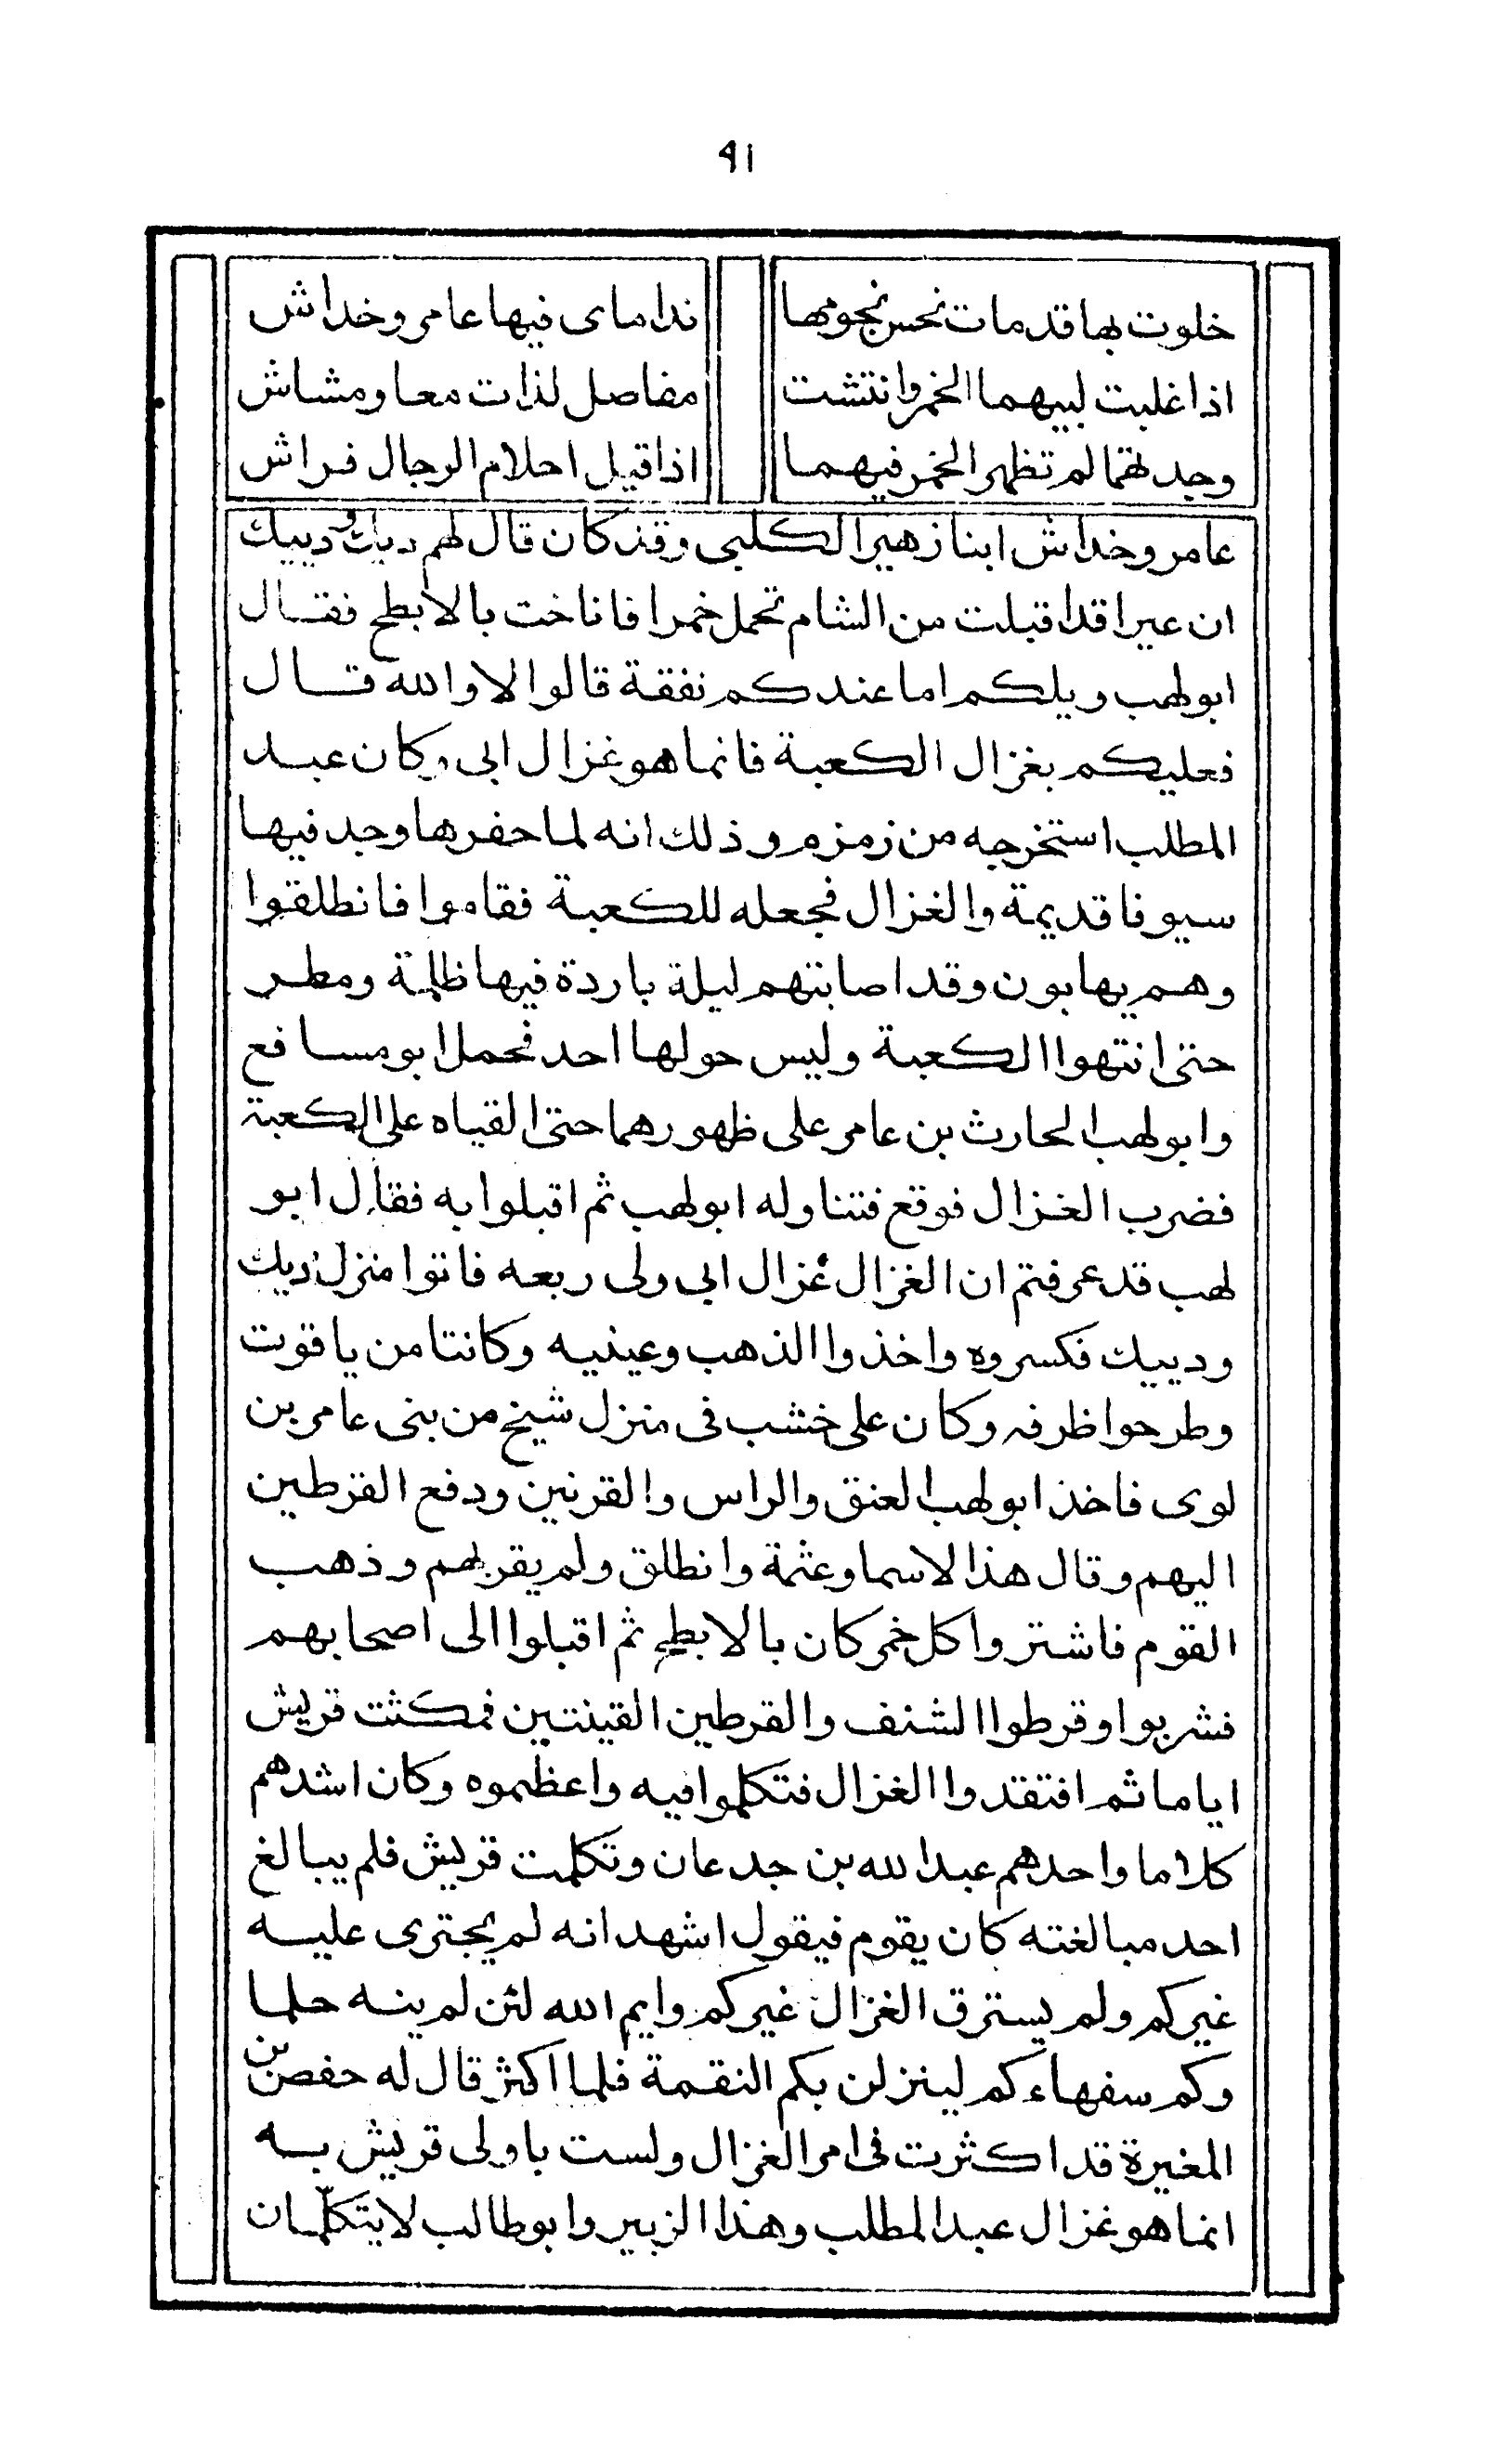 ٩١
خلوت بها قد مات نحس نجومها نداماى فيها عامر وخداش
اذا غلبت لبيهما الخمر وانتشت مفاصل لذات معا ومشاش
وجدتهما لم تظهر الخمر فيهما اذا قيل احلام الرجال فراش
عامر وخداش ابنا زهير الكلبى وقد كان قال لهم ديك ودييك
ان عيرا قد اقبلت من الشام تحمل خمرا فاناخت بالابطح فقال
ابو لهب ويلكم اما عندكم نفقة قالوا لا والله قال
فعليكم بغزال الكعبة فانما هو غزال ابى وكان عبد
المطلب استخرجه من زمزم وذلك انه لما حفرها وجد فيها
سيوفا قديمة والغزال فجعله للكعبة فقاموا فانطلقوا
وهم يهابون وقد اصابتهم ليلة باردة فيها ظلمة ومطر
حتى انتهوا الكعبة وليس حولها احد فحمل ابو مسافع
وابو لهب الحارث بن عامر على ظهورهما حتى القياه على الكعبة
فضرب الغزال فوقع فتناوله ابو لهب ثم اقبلوا به فقال ابو
لهب قد عرفتم ان الغزال غزال ابى ولى ربعه فاتوا منزل ديك
ودييك فكسروه واخذوا الذهب وعينيه وكانتا من ياقوت
وطرحوا ظرفه وكان على خشب فى منزل شيخ من بنى عامر بن
لوى فاخذ ابو لهب العنق والراس والقرنين ودفع القرطين
اليهم وقال هذا لاسما وعثمة وانطلق ولم يقربهم وذهب
القوم فاشتروا كل خمر كان بالابطح ثم اقبلوا الى اصحابهم
فشربوا وقرطوا الشنف والقرطين القينتين فمكثت قريش
اياما ثم افتقدوا الغزال فتكلموا فيه واعظموه وكان اشدهم
كلاما واحدهم عبد الله بن جدعان وتكلمت قريش فلم يبالغ
احد مبالغته كان يقوم فيقول اشهد انه لم يجترى عليه
غيركم ولم يسترق الغزال غيركم وايم الله لئن لم ينه حلما
وكم سفهاءكم لينزلن بكم النقمة فلما اكثر قال له حفص بن
المغيرة قد اكثرت فى امر الغزال ولست باولى قريش به
انما هو غزال عبد المطلب وهذا الزبير وابو طالب لا يتكلّمان